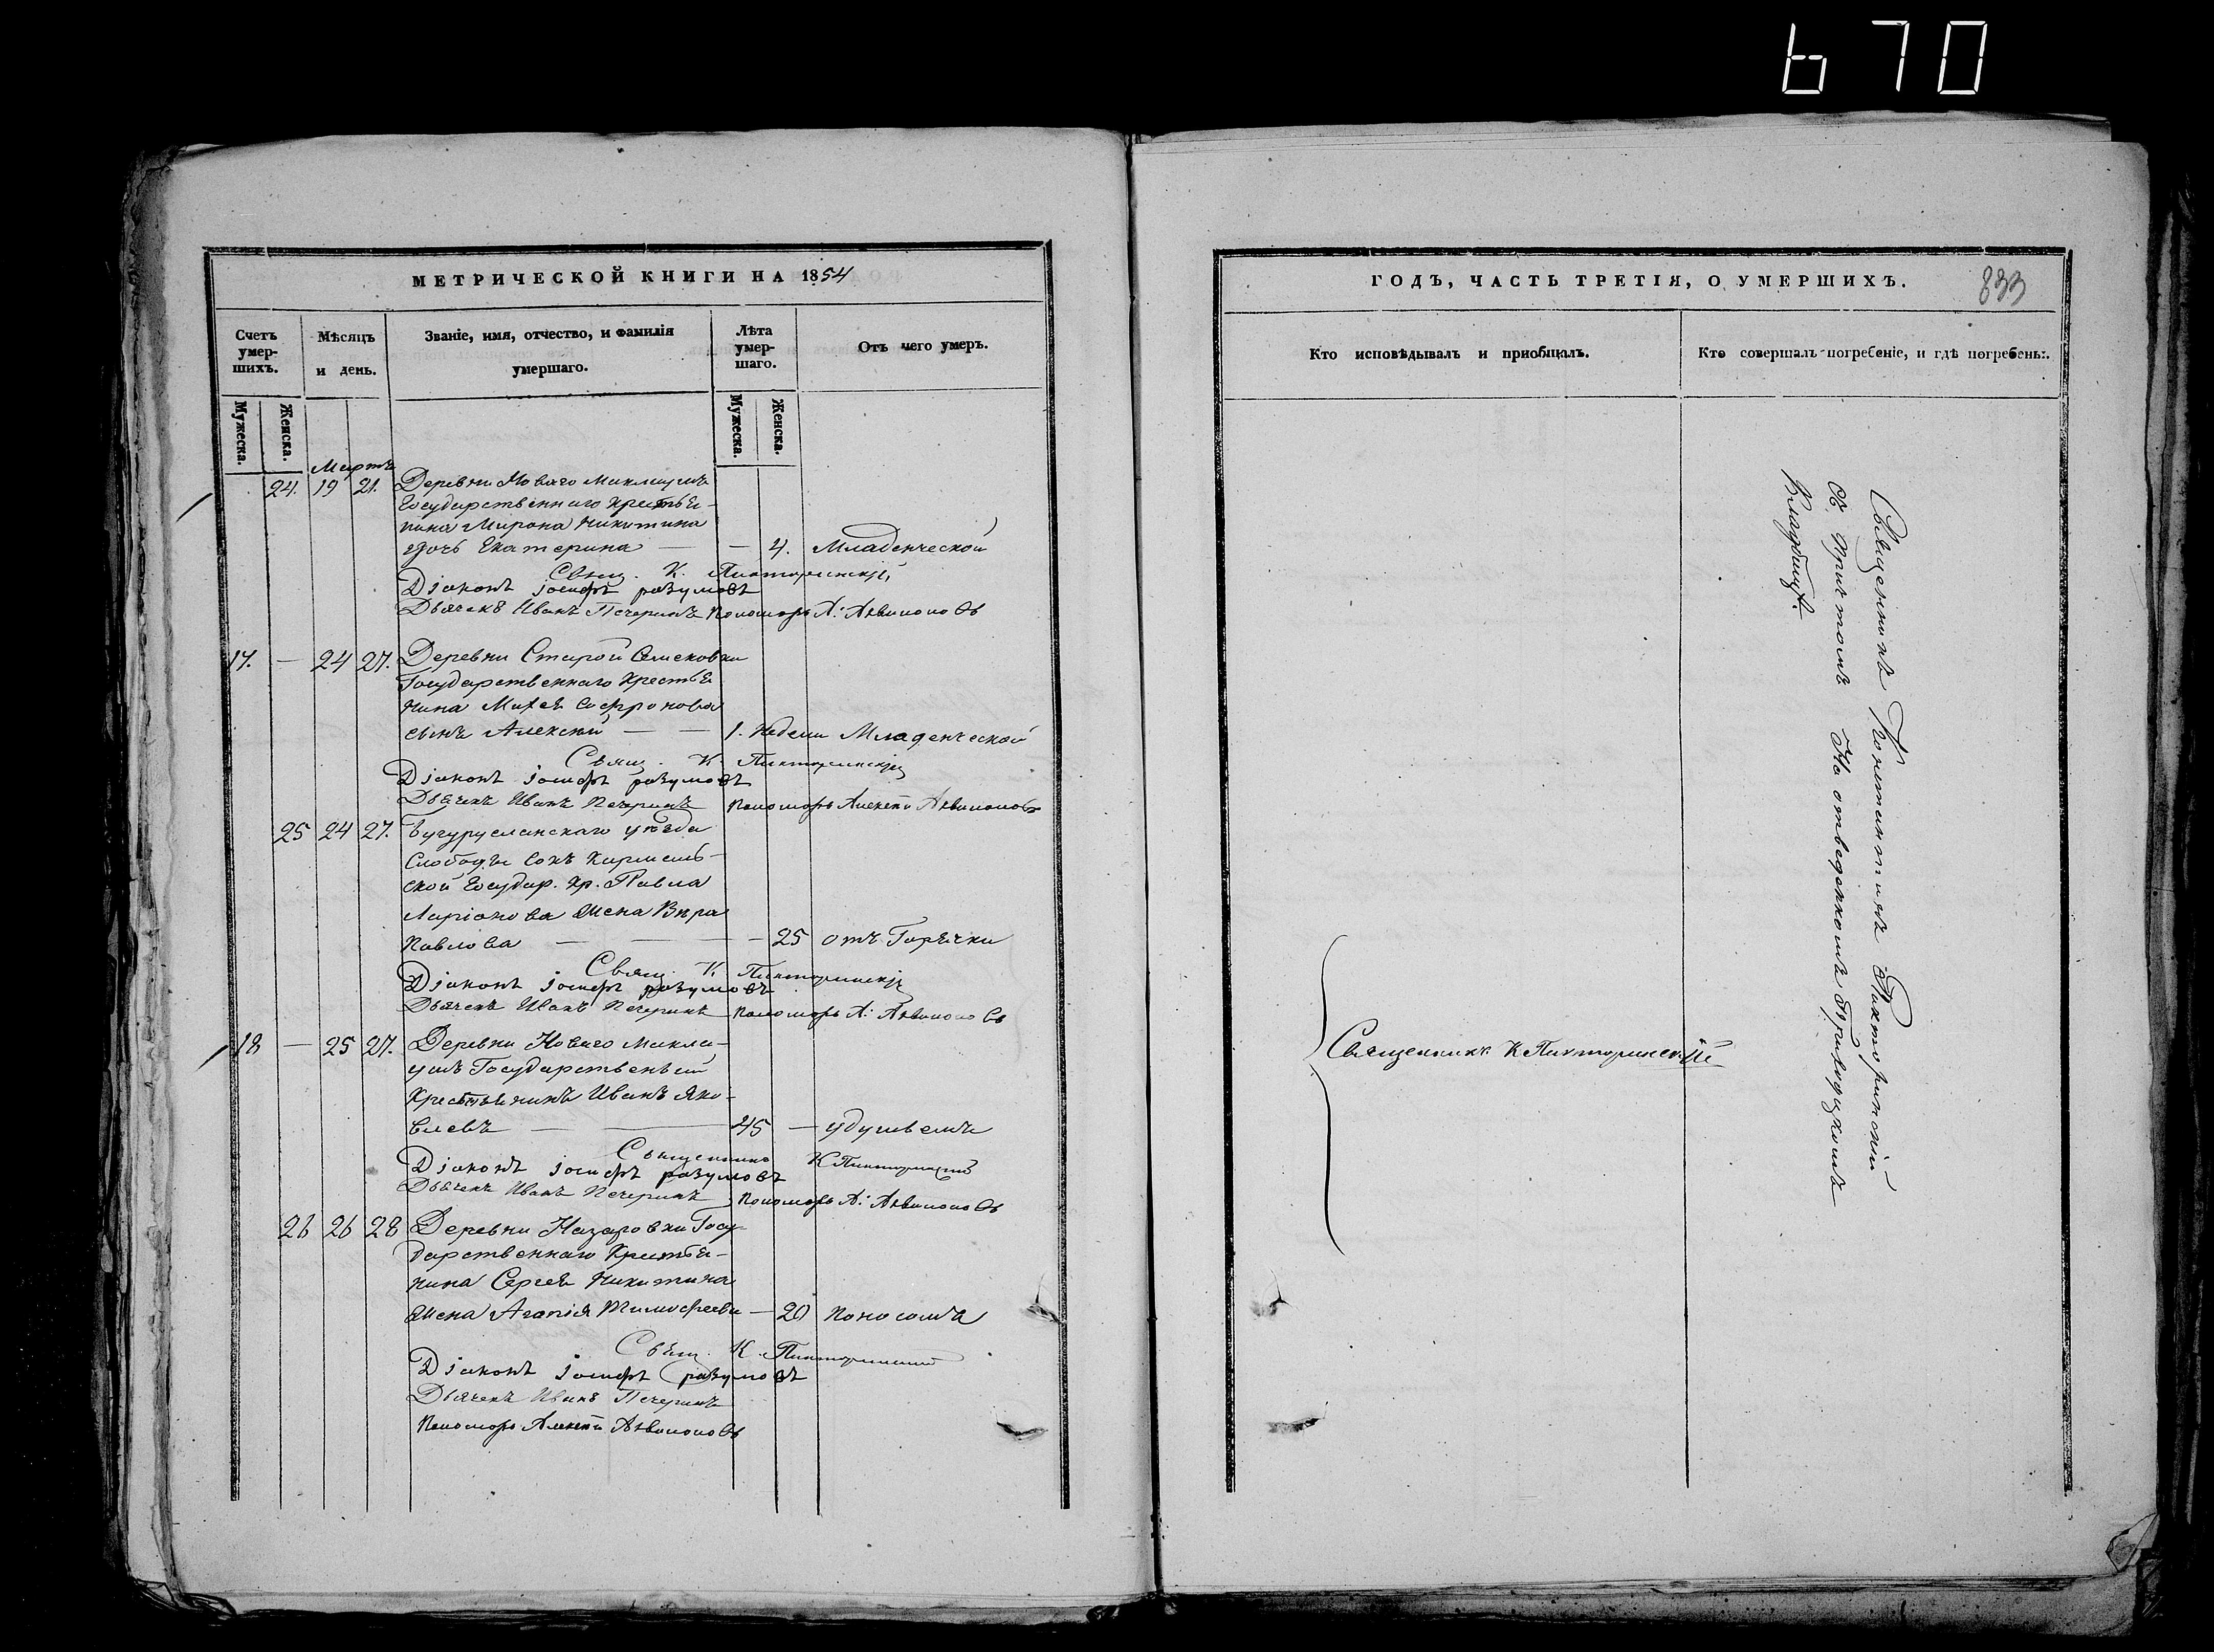 670
МЕТРИЧЕСКОЙ КНИГИ НА 1854
Счетъ умер-шихъ.
Мѣсяцъ и день.
Званіе, имя, отчество, и фамилія умершаго.
Лѣта умер-шаго.
Отъ чего умеръ.
Мужеска.
Женска.
Мужеска.
Женска.
Мартъ
24. 19 21. Деревни Новаго Маклауша
Государственнаго крестья-
нина Мирона Никитина
дочь Екатерина — — 4. Младенческой
Свящ. К. Пикторинскій
Діаконъ Іосифъ Разумовъ
Дьячекъ Иванъ Печеринъ Пономарь А:
17. — 24 27. Деревни Старой
Государственнаго Крестья
нина Михея Софронова
сынъ Алексий — — 1. недели Младенческой
Свящ. К. Пикторинскій
Діаконъ Іосифъ Разумовъ
Дьячекъ Иванъ Печеринъ Пономарь Алексей
25 24 27. Бугурусланскаго уѣзда
Слободы Сокъ Кармалъ-
ской Государ. кр. Павла
Ларіонова жена Вѣра
Павлова — — — 25 отъ Горячки
Свящ. К. Пикторинскій
Діаконъ Іосифъ Разумовъ
Дьячекъ Иванъ Печеринъ Пономарь А:
18 — 25 27. Деревни Новаго Макла-
уша Государственный
Крестьянинъ Иванъ Яко-
влевъ — — 45 — удушьемъ
Священникъ К Пикторинскій
Діаконъ Іосифъ Разумовъ
Дьячекъ Иванъ Печеринъ Пономарь А:
26 26 28 Деревни Назаровки Госу-
дарственнаго Крестья-
нина Сергея Никитина
жена Агапія Тимофеева — 20 поносомъ
Свящ. К. Пикторинскій
Діаконъ Іосифъ Разумовъ
Дьячекъ Иванъ Печеринъ
Пономарь Алексей
ГОДЪ, ЧАСТЬ ТРЕТІЯ, О УМЕРШИХЪ.
833
Кто исповѣдывалъ и приобщалъ.
Кто совершалъ погребеніе, и гдѣ погребены.
Священникъ К Пикторинскій
Священникъ Константинъ Пикторинскій
Съ причтомъ На отведенномъ Приходскомъ
Кладбищѣ.